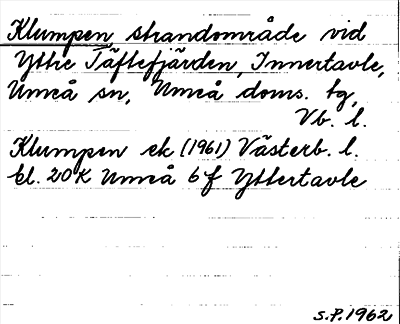 Klumpen strandområde vid
Yttre Täftefjärden, Innertavle,
Umeå sn, Umeå doms. tg,
Vb. l.
Klumpen ek (1961) Västerb. l.
bl. 20K Umeå 6f Yttertavle
S.P. 1962